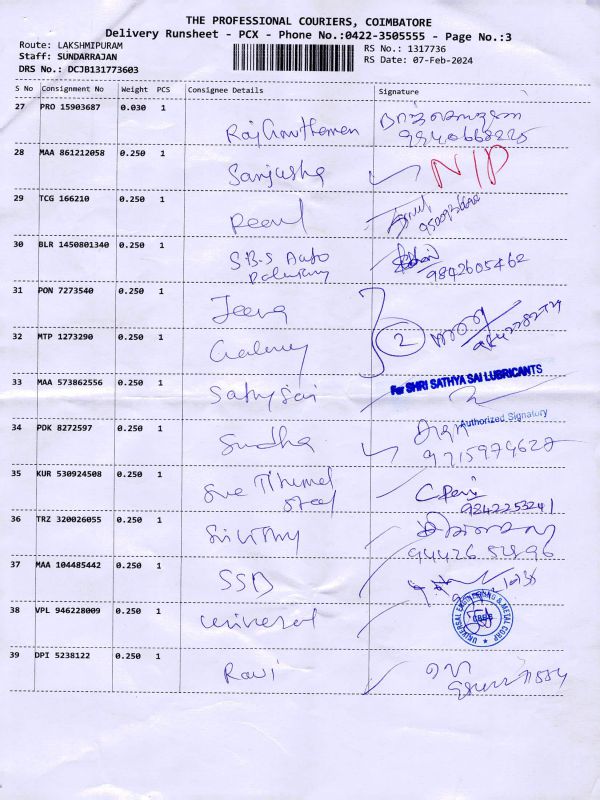 THE PROFESSIONAL COURIERS, COIMBATORE
Delivery Runsheet - PCX - Phone No.:0422-3505555 - Page No.:3
Route: LAKSHMIPURAM
Staff: SUNDARRAJAN
DRS No.: DCJB131773603
RS No.: 1317736
RS Date: 07-Feb-2024
S No Consignment No Weight PCS Consignee Details Signature
27 PRO 15903687 0.030 1
28 MAA 861212058 0.250 1 Sanjusha N/P
29 TCG 166210 0.250 1
30 BLR 1450801340 0.250 1 S.B.S Auto
9842605462
31 PON 7273540 0.250 1 Jeeva
32 MTP 1273290 0.250 1 2
33 MAA 573862556 0.250 1 Sathy Sai For SHRI SATHYA SAI LUBRICANTS
Authorized Signatory
34 PDK 8272597 0.250 1 Sudha
9715974627
35 KUR 530924508 0.250 1 Sree Thirumal
Steel
9842253241
36 TRZ 320026055 0.250 1
37 MAA 104485442 0.250 1 SSD
38 VPL 946228009 0.250 1 Universal UNIVERSAL ENGINEERING & METAL CORP
39 DPI 5238122 0.250 1 Ravi